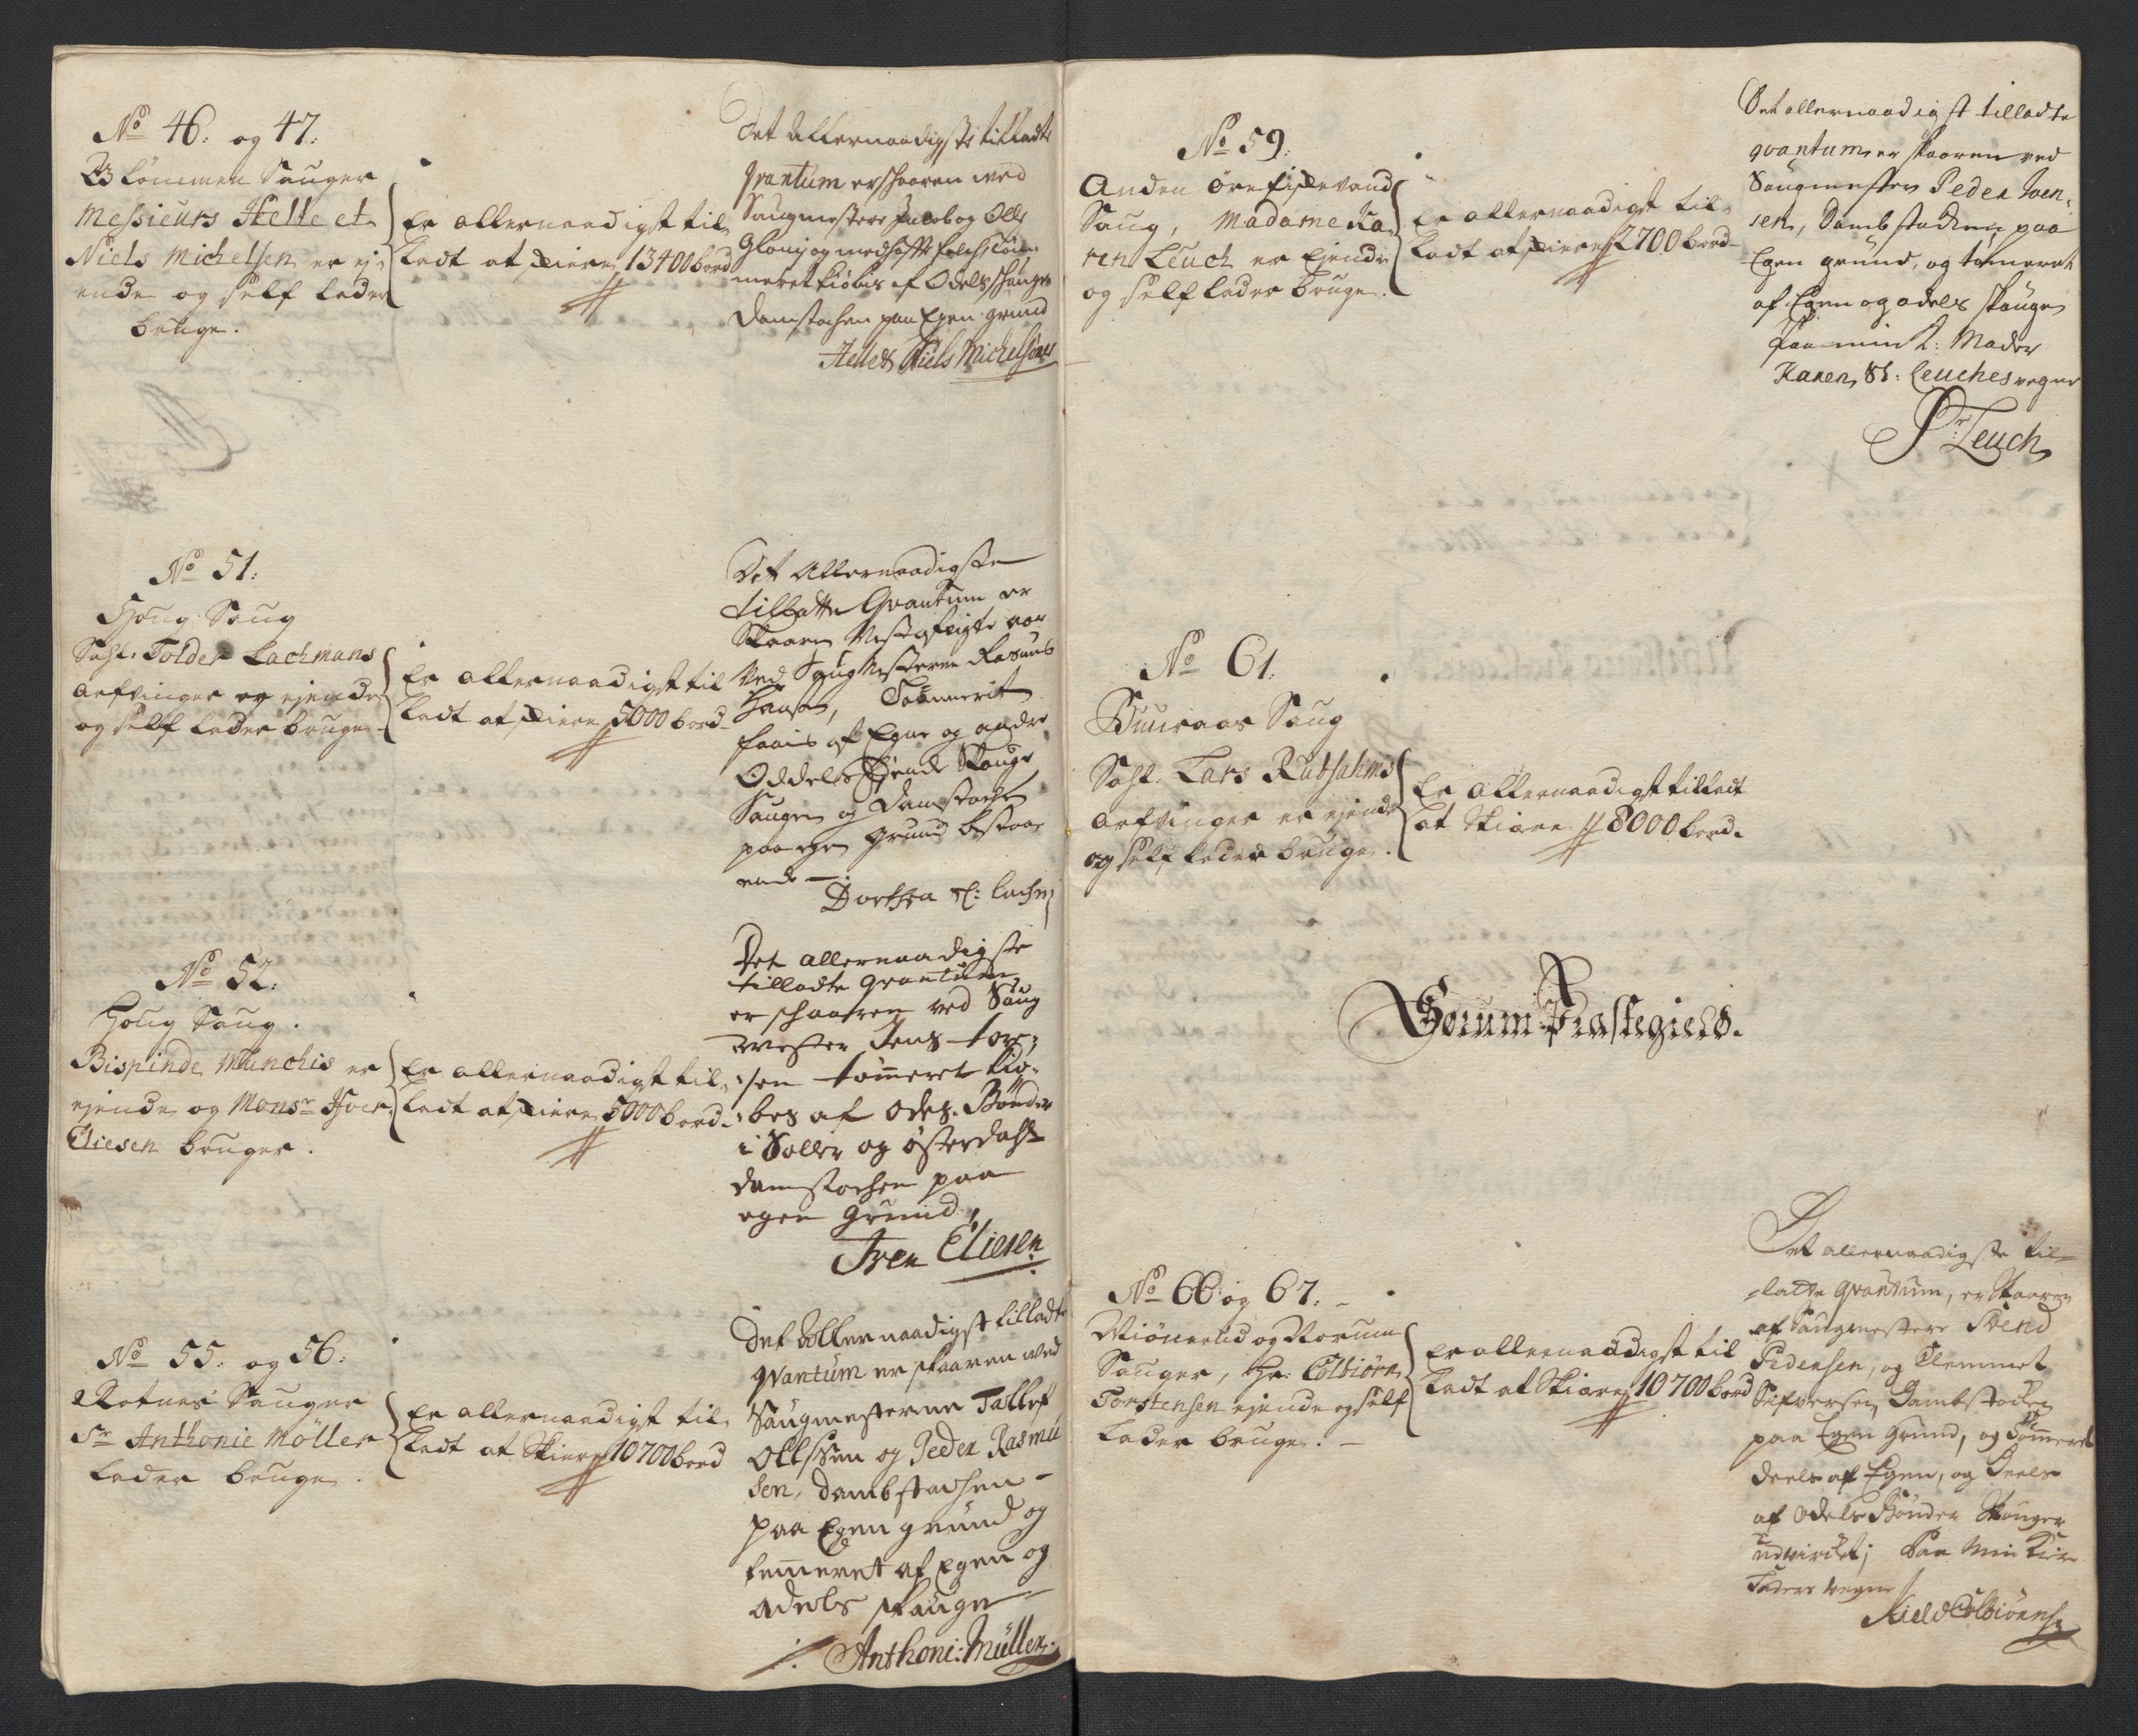 No 46: og 47:
Blommen Sauger
Messieurs Helle et
Niels Michelsen er ej-
ende og self lader
bruge.
Er allernaadigst til
ladt at skiere 13400 bord
Det allernaadigste tilladte
qvantum er schaaren med
Saugmestere Jacob og Olle
meret kiøbes af Odels schauger
damstochen paa Egen grund
Helle & Niels Michelsøner
No 51:
Houg Saug
Sahl. Tolder Lachmans
arfvinger er ejende
og self lader bruge
Er allernaadigst til
ladt at skiere 5000 bord
Det Allernaadigste
tilladte Qvantum er
Skaaren
Ved Saug Mesteren Rasmus
Hansen, Tømmerit
faais af Egne og andre
Oddels Skouge
Saugen og Damstochen
paa egen grund bestaa-
ende
Dorthea Sl: Lachm
No 52:
Houg Saug.
Bispinde Munchis er
ejende og Monsr Iver
Eliesen bruger.
Er allernaadigst til
ladt at skiere 5000 bord
Det allernaadigste
tilladte qvantum
er schaaren ved Saug
mester Jens Tore-
sen tømmeret kiø-
bes af Odels Bønder
i Soller og Østerdahl
damstochen paa
egen Grund,
Iven Eliesen
No 55: og 56:
Rotnes Sauger
Sr Anthonie Møller
lader bruge.
Er allernaadigst til
ladt at Skiere 10700 bord
Det Allernaadigst tilladte
qvantum er skaaren med
Saugmesterne Tallef
Ollssen og Peder Rasmu
sen, dambstochen
paa Egen grund og
temeret af Egen og
adels skauge
Anthoni: Müller
No 59:
Anden Ørefiskevand
Saug, Madame Ka-
ren Leuch er Ejende
og self lader bruge.
Er allernaadigst til
ladt at skiere 2700 bord
Det allernaadigst tilladte
qvantum er skaaren ved
Saugmesteren Peder Iven-
sen, Dambstochen paa
Egen grund, og tømeret
af Egen og odels skauge
Paa min K: Moder
Karen Sl: Leuches vegne
Pr Leuch
No 61.
Buuraas Saug
Sahl. Lars Rubsahms
arfvinger er ejende
og self lader bruge.
Er Allernaadigst tilladt
at Skiere 8000 bord.
Sørum Præstegield.
No 66: og 67.
Miønnelid og Rorum
Sauger, Hr. Colbiørn
Torstensen ejende og self
lader bruge.
Er allernaadigst til
ladt at Skiere 10700 bord
Det allernaadigste til-
ladte qvantum, er Skaaren
af Saugmestere Svend
Pedersen, og Clemmet
Sifversen, Dambstochen
paa Egen Grund, og Tømmeret
deels af Egen, og Deels
af Odels Bønder Skouger
udvirchet; Paa Min Kiere
Faders vegne
Kield Colbiørns